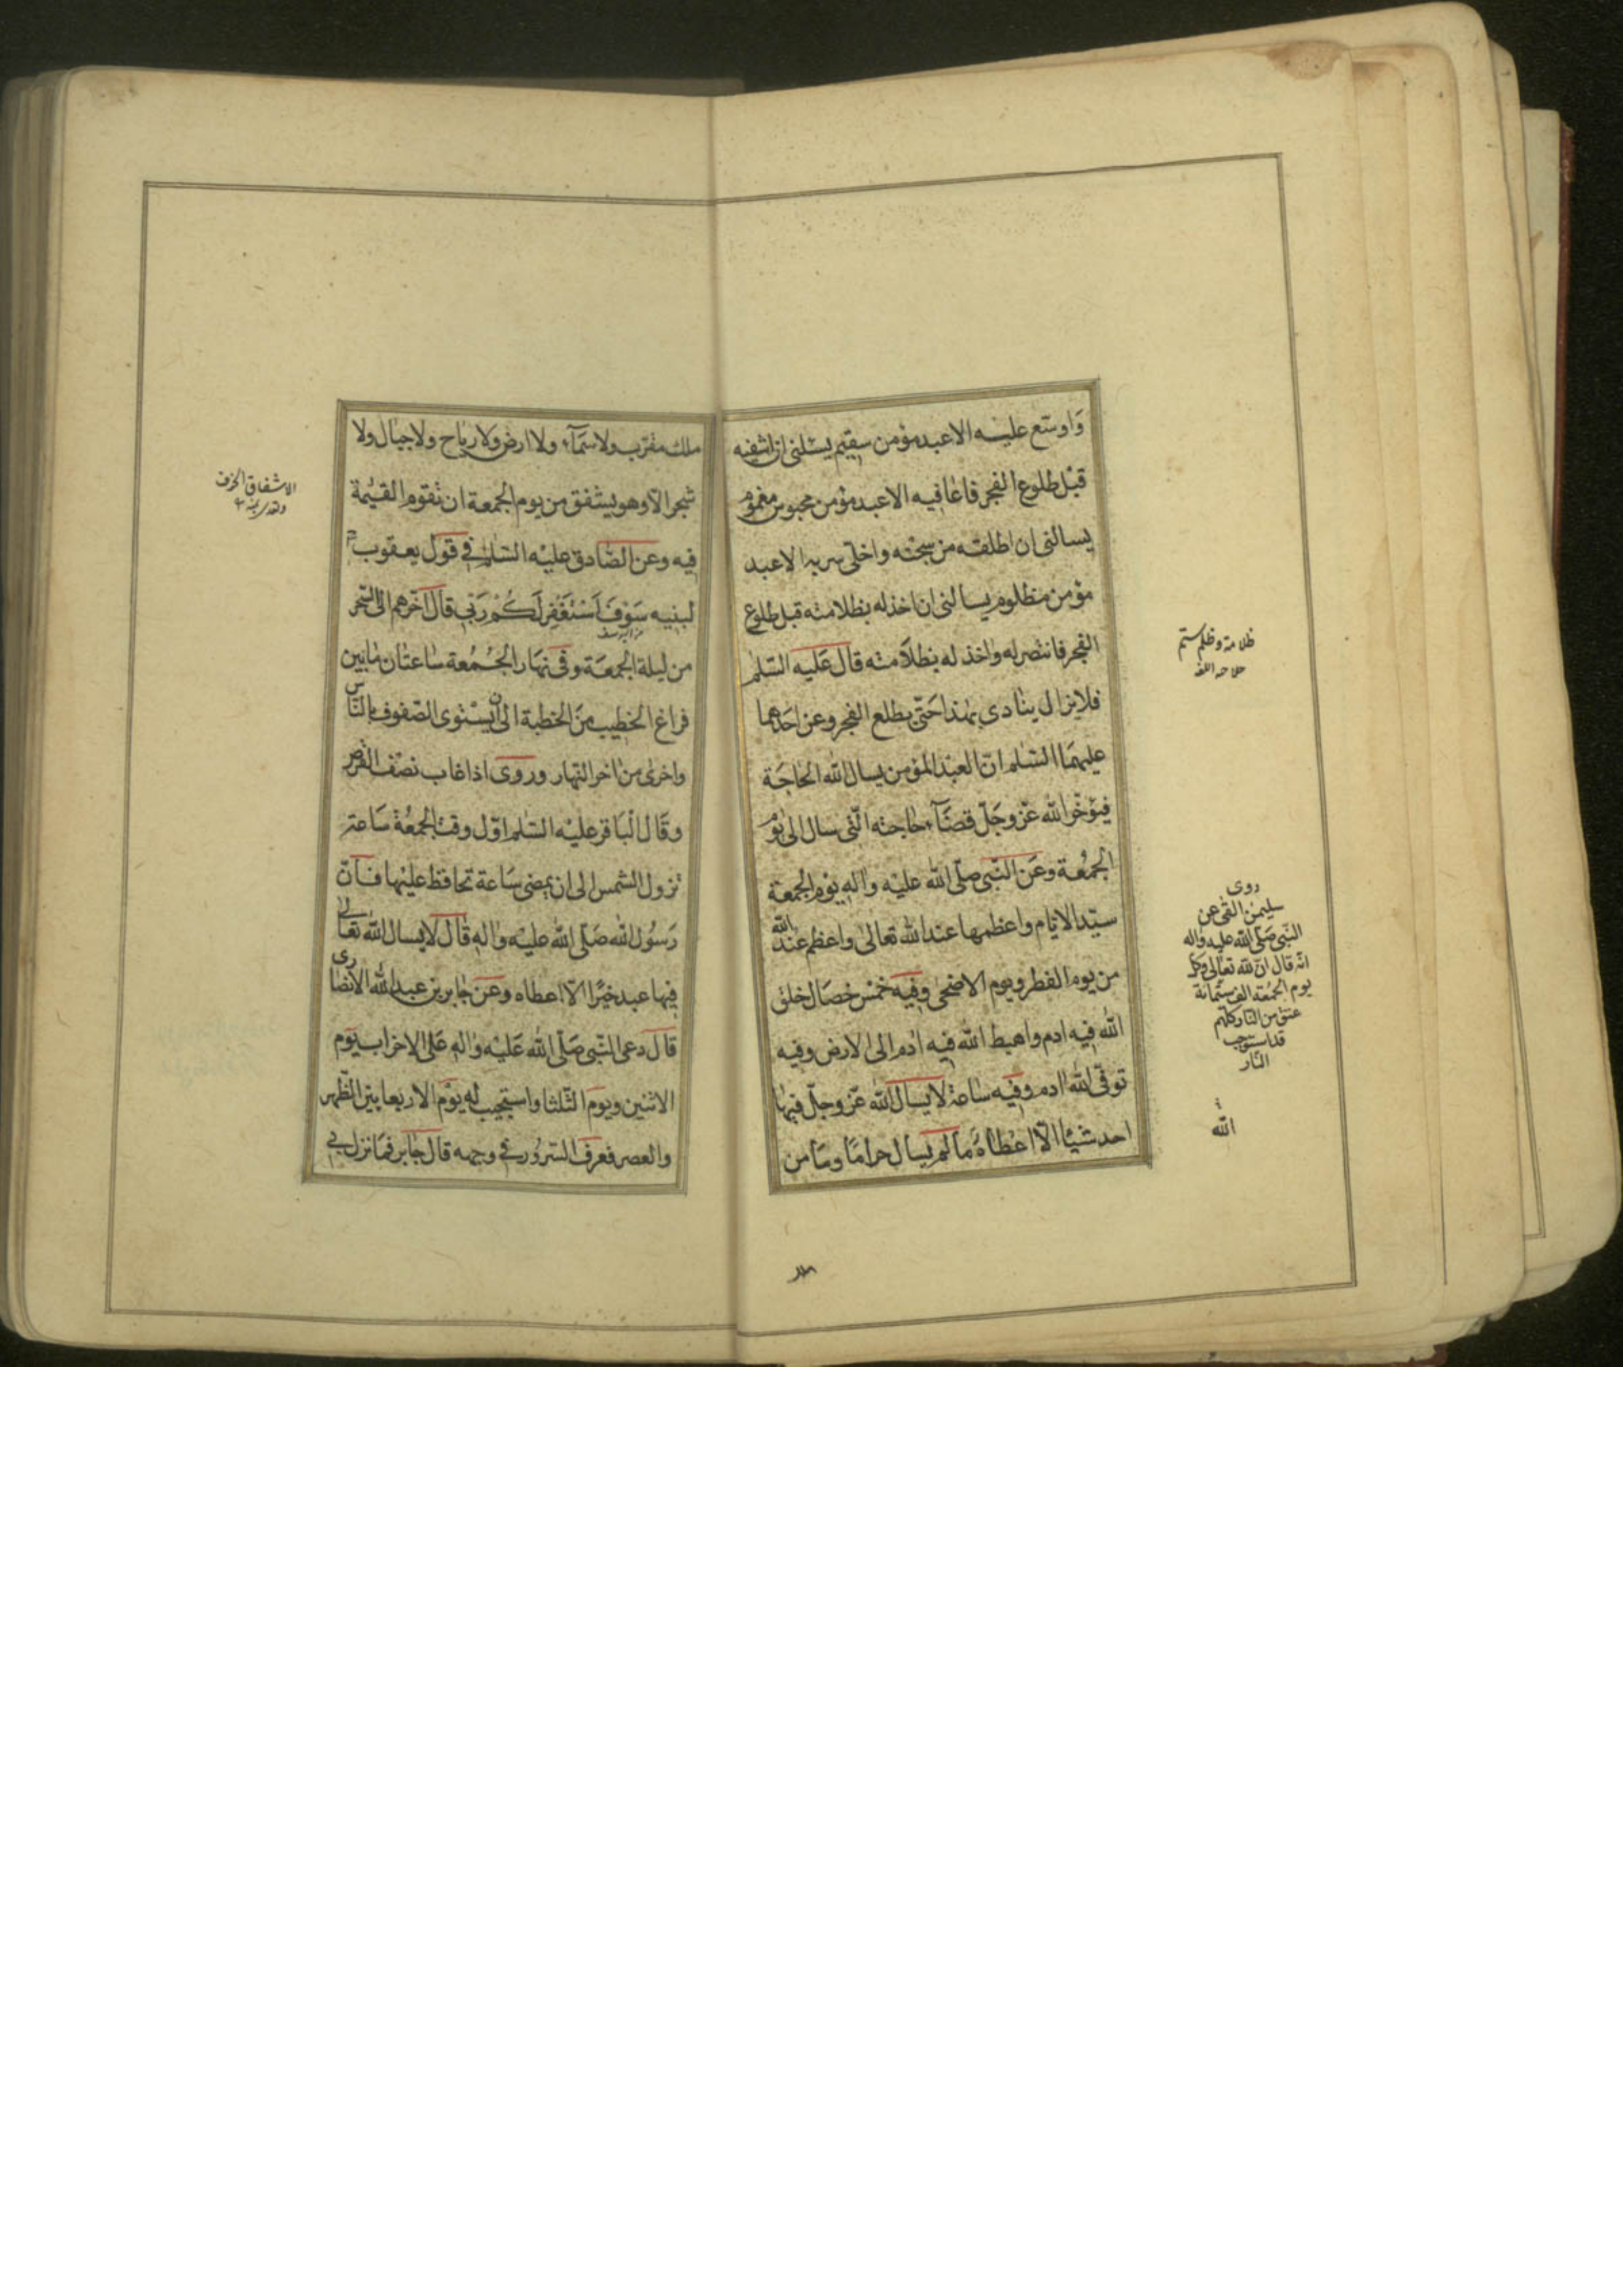 وَاوسّع عليه الا عبد مؤمن سقيم يسئلنى ان اشفيه
قبل طلوع الفجر فاعافيه الا عبد مؤمن محبوس مغموم
يسالنى ان اطلقه من سجنه واخلّى سربه الا عبد
مؤمن مظلوم يسالنى ان اخذ له بظلامته قبل طلوع
الفجر فانتصر له واخذ له بظلامته قال عَليه السّلم
فلا يزال ينادى بهذا حَتّى يطلع الفجر وعن احَدهما
عليهمَا السّلم انّ العبْد المؤمن يسال الله الحاجَة
فيؤخّر الله عزّ وجَلّ قضآء حاجته الّتى سال الى يوم
الجمُعة وعَن النّبى صلّى الله عليْه واله يوْم الجمعة
سيّد الايّام واعظمها عند الله تعالى واعظم عند الله
من يوم الفطر ويوم الاضحى وفيه خمْس خصَال خلق
الله فيه ادم واهبط الله فيه ادم الى الارض وفيه
توفّى الله ادم وفيه ساعة لا يسال الله عزّ وجلّ فيها
احد شيْئا الّا اعْطاهُ مَا لم يسال حرامًا ومَا من
ظلامة وظلم ستم
روى
سليمن القمى عن
النّبى صَلّى الله عليه واله
انّه قال انّ لله تعالى فى كل
يوم الجمُعة الف ستّمائة
عتق من النّار كلهم
قد استوجب
النّار
الله
ملك مقرّب ولا سَمآء ولا ارض ولا رياح ولا جبال ولا
شجر الّا وهو يشفق من يوم الجمعة ان تقوم القيٰمة
فيه وعن الصّادق عليْه السّلم فى قول يعقوب
لبنيه سَوْفَ اَسْتَغْفِر لَكُمْ رَبّى قال اخّرهم الى السّحر
من ليلة الجمعَة وفى نهَار الجُمُعة ساعتان مَا بين
فراغ الخطيب منَ الخطبة الى ان يسْتوى الصّفوف بالنّاس
واخرى من اخر النّهار وروى اذا غاب نصْف القرص
وقال الْبَاقر عليْه السّلم اوّل وقت الجمعُة سَاعة
تزول الشّمس الى ان يمضى سَاعة تحافظ عليْها فانّ
رَسُول الله صَلّى الله عليْه واله قال لا يسال الله تعالى
فيها عبد خيْرًا الّا اعطاه وعَن جابر بن عبد الله الانصارى
قال دعى النّبى صَلّى الله عَليْه واله عَلى الاحزاب يوم
الاثنين ويوم الثّلثا واستجيب له يوْم الاربعا بيْن الظّهر
والعصر فعرف السّرُور فى وجهه قال جابر فما نزل بى
الاشفاق الخوف